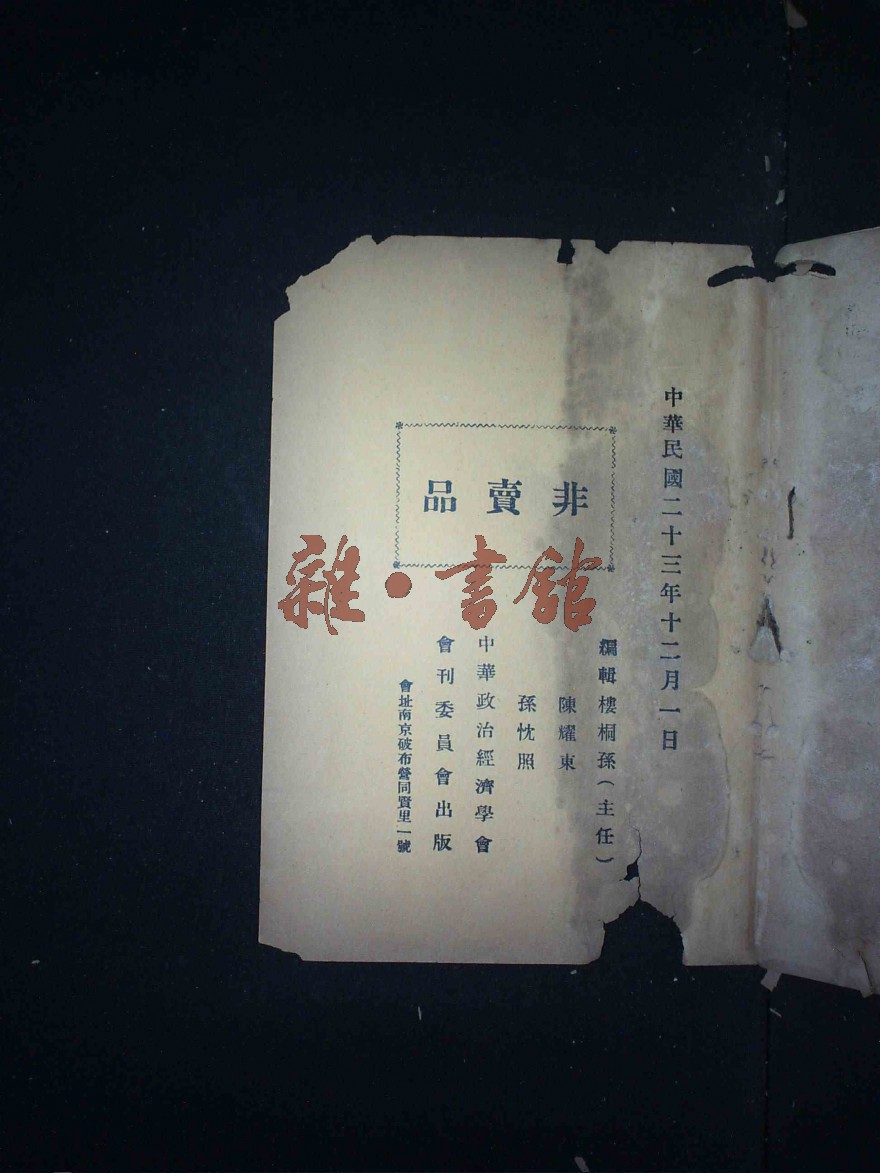 中華民國二十三年十二月一日
非賣品
編輯樓桐孫(主任)
陳耀東
孫忱照
中華政治經濟學會
會刊委員會出版
會址南京破布營同賢里一號
雜·書館